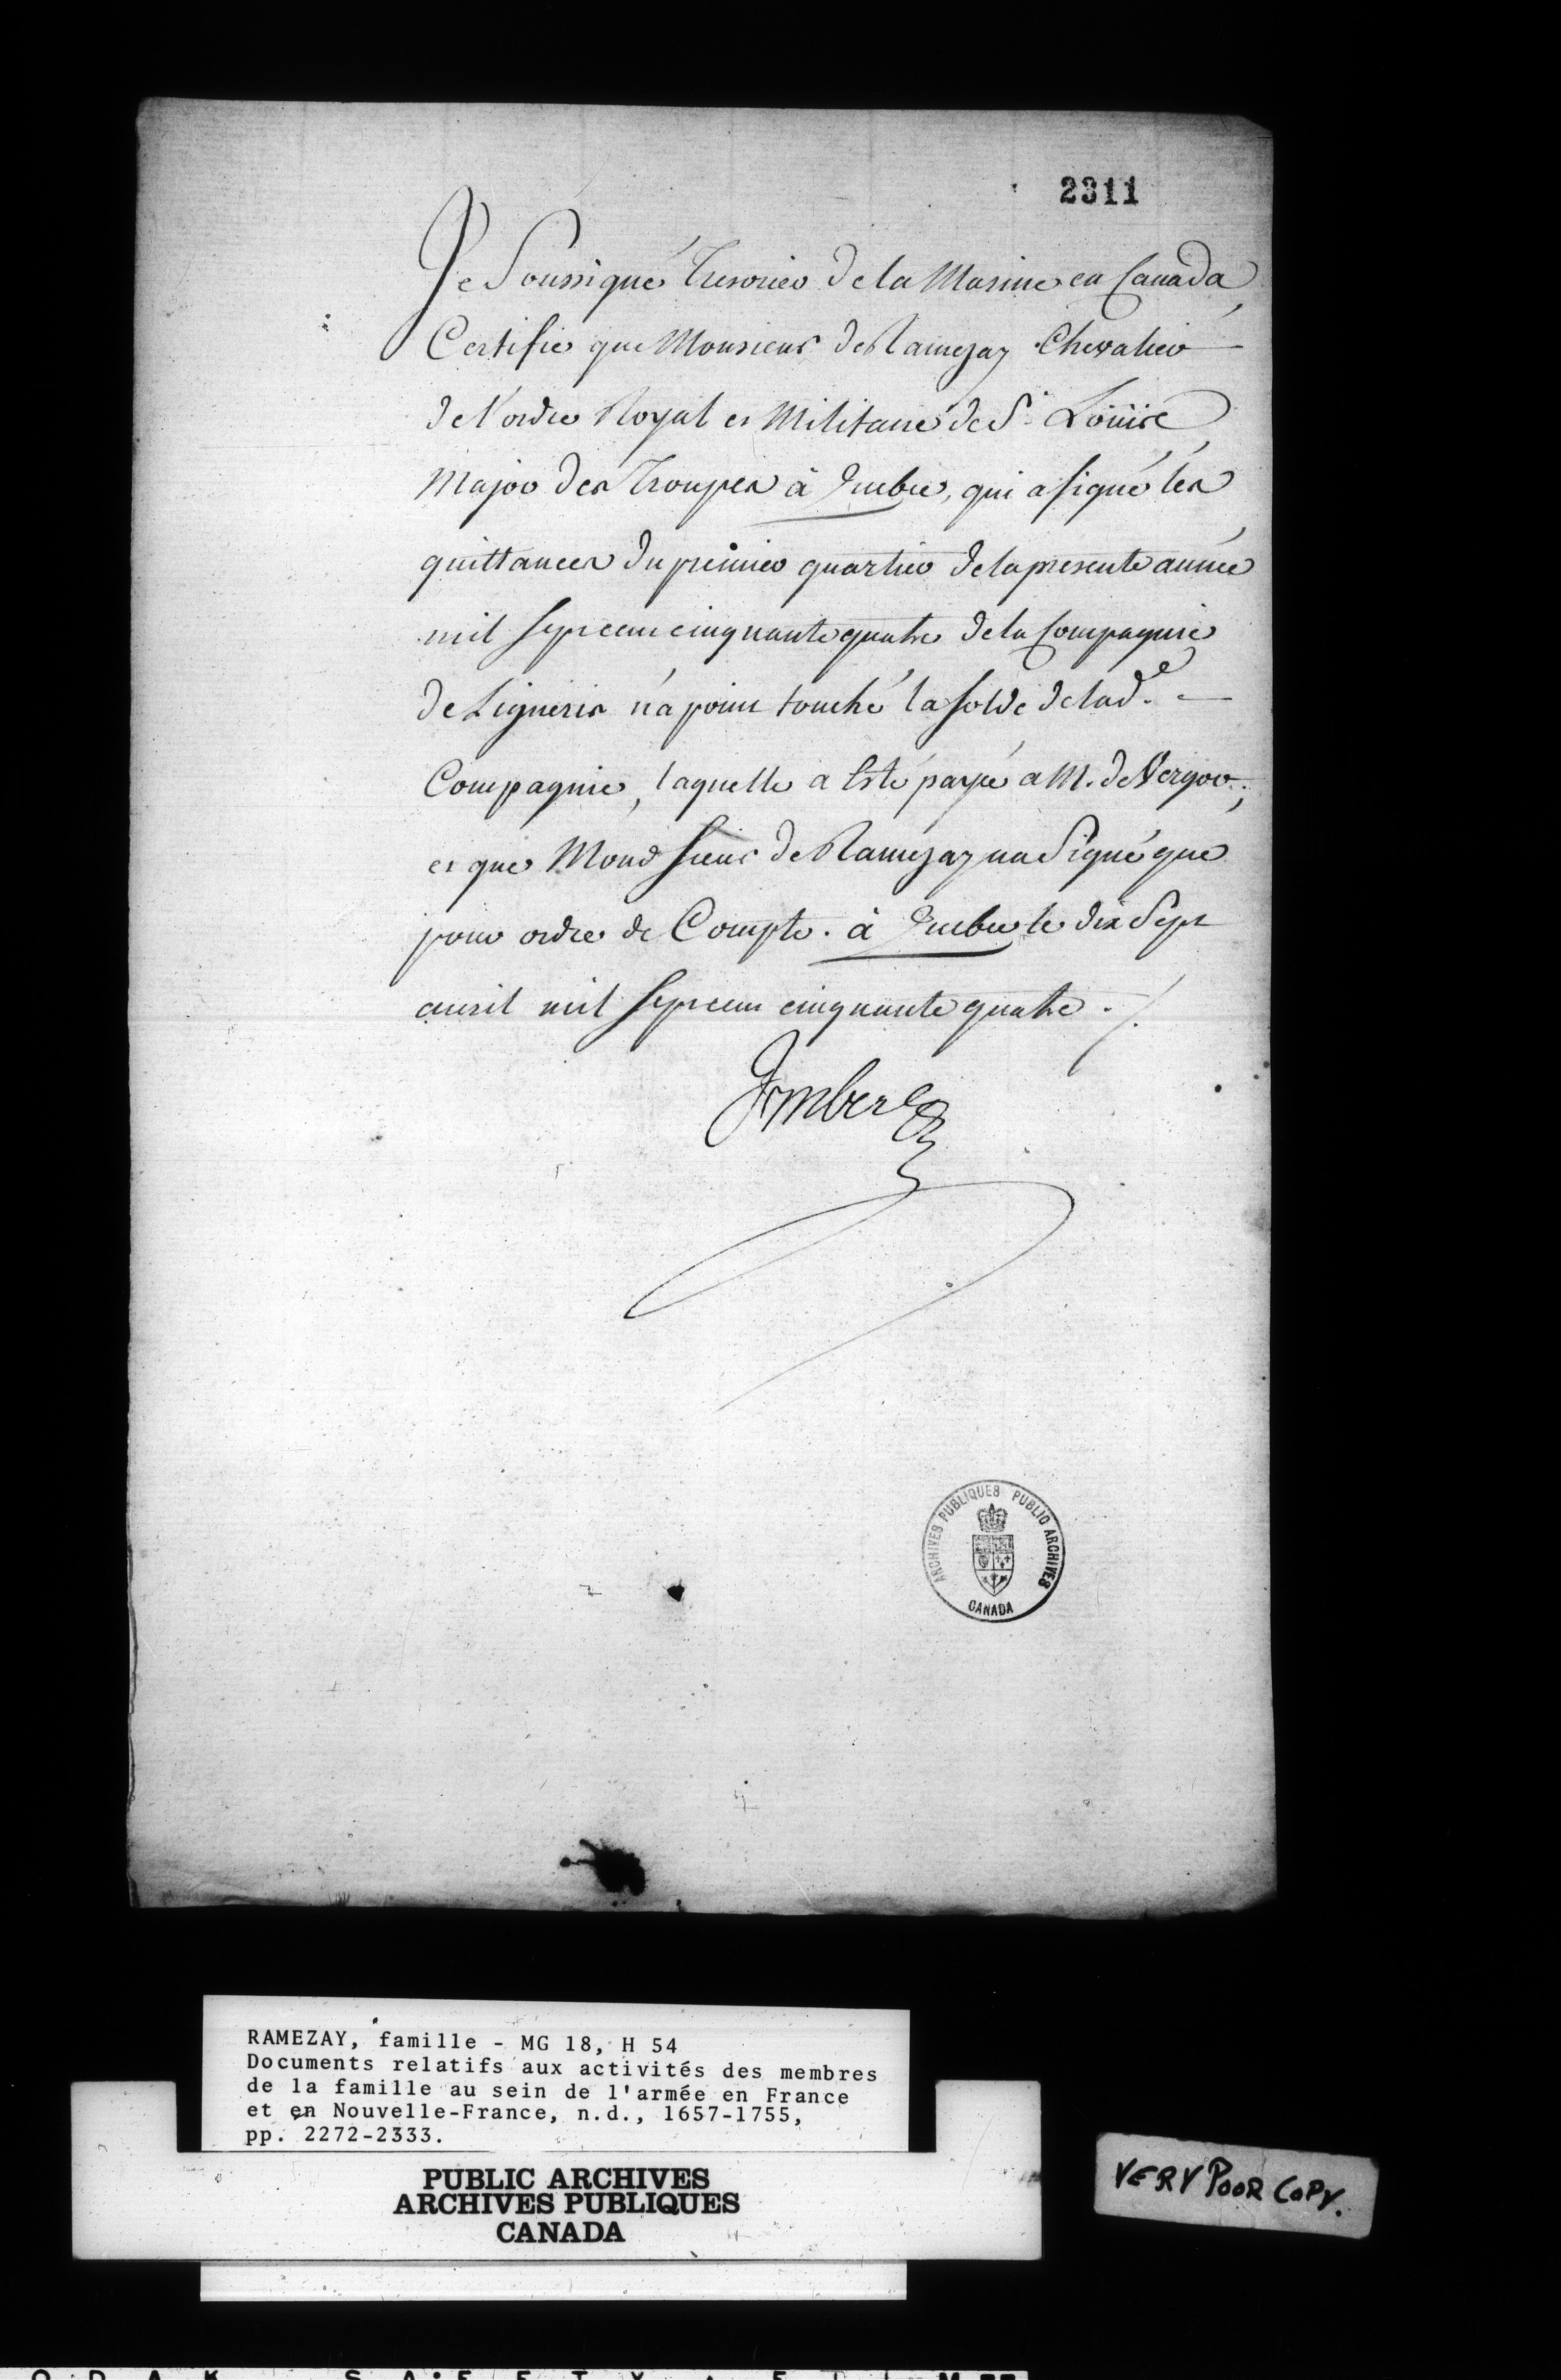 2311
Je Soussigné Tresorier de la Marine en Canada
Certifie que Monsieur de Ramezay Chevalier
de l'ordre Royal et Militaire de St. Loüis
Major des Troupes à Quebec, qui a signé les
quittances du premier quartier de la presente année
mil sept cent cinquante quatre de la Compagnie
de Ligneris n'a point touché la solde de lad.e
Compagnie, laquelle a Esté payé a M. de Vergor,
et que Mond Sieur de Ramezay na Signé que
pour ordre de Compte. à Quebec le dix Sept
avril mil sept cent cinquante quatre ./.
Imbert
ARCHIVES PUBLIQUES PUBLIC ARCHIVES
CANADA
RAMEZAY, famille - MG 18, H 54
Documents relatifs aux activités des membres
de la famille au sein de l'armée en France
et en Nouvelle-France, n.d., 1657-1755,
pp. 2272-2333.
PUBLIC ARCHIVES
ARCHIVES PUBLIQUES
CANADA
VERY POOR COPY.